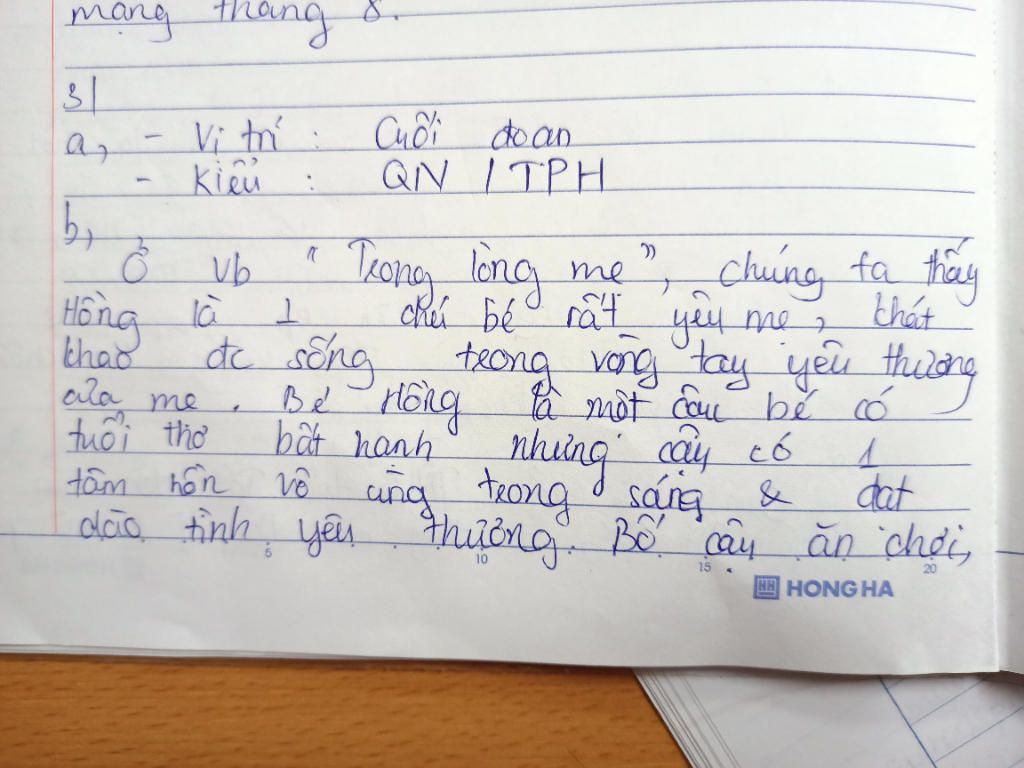 mạng tháng 8.
3/
a, - Vị trí : Cuối đoạn
- Kiểu : QN / TPH
b,
Ở vb "Trong lòng mẹ", chúng ta thấy
Hồng là 1 chú bé rất yêu mẹ, khát
khao đc sống trong vòng tay yêu thương
của mẹ. Bé Hồng là một cậu bé có
tuổi thơ bất hạnh nhưng cậu có 1
tâm hồn vô cùng trong sáng & dạt
dào tình yêu thương. Bố cậu ăn chơi,
5 10 15 20
HH HONG HA